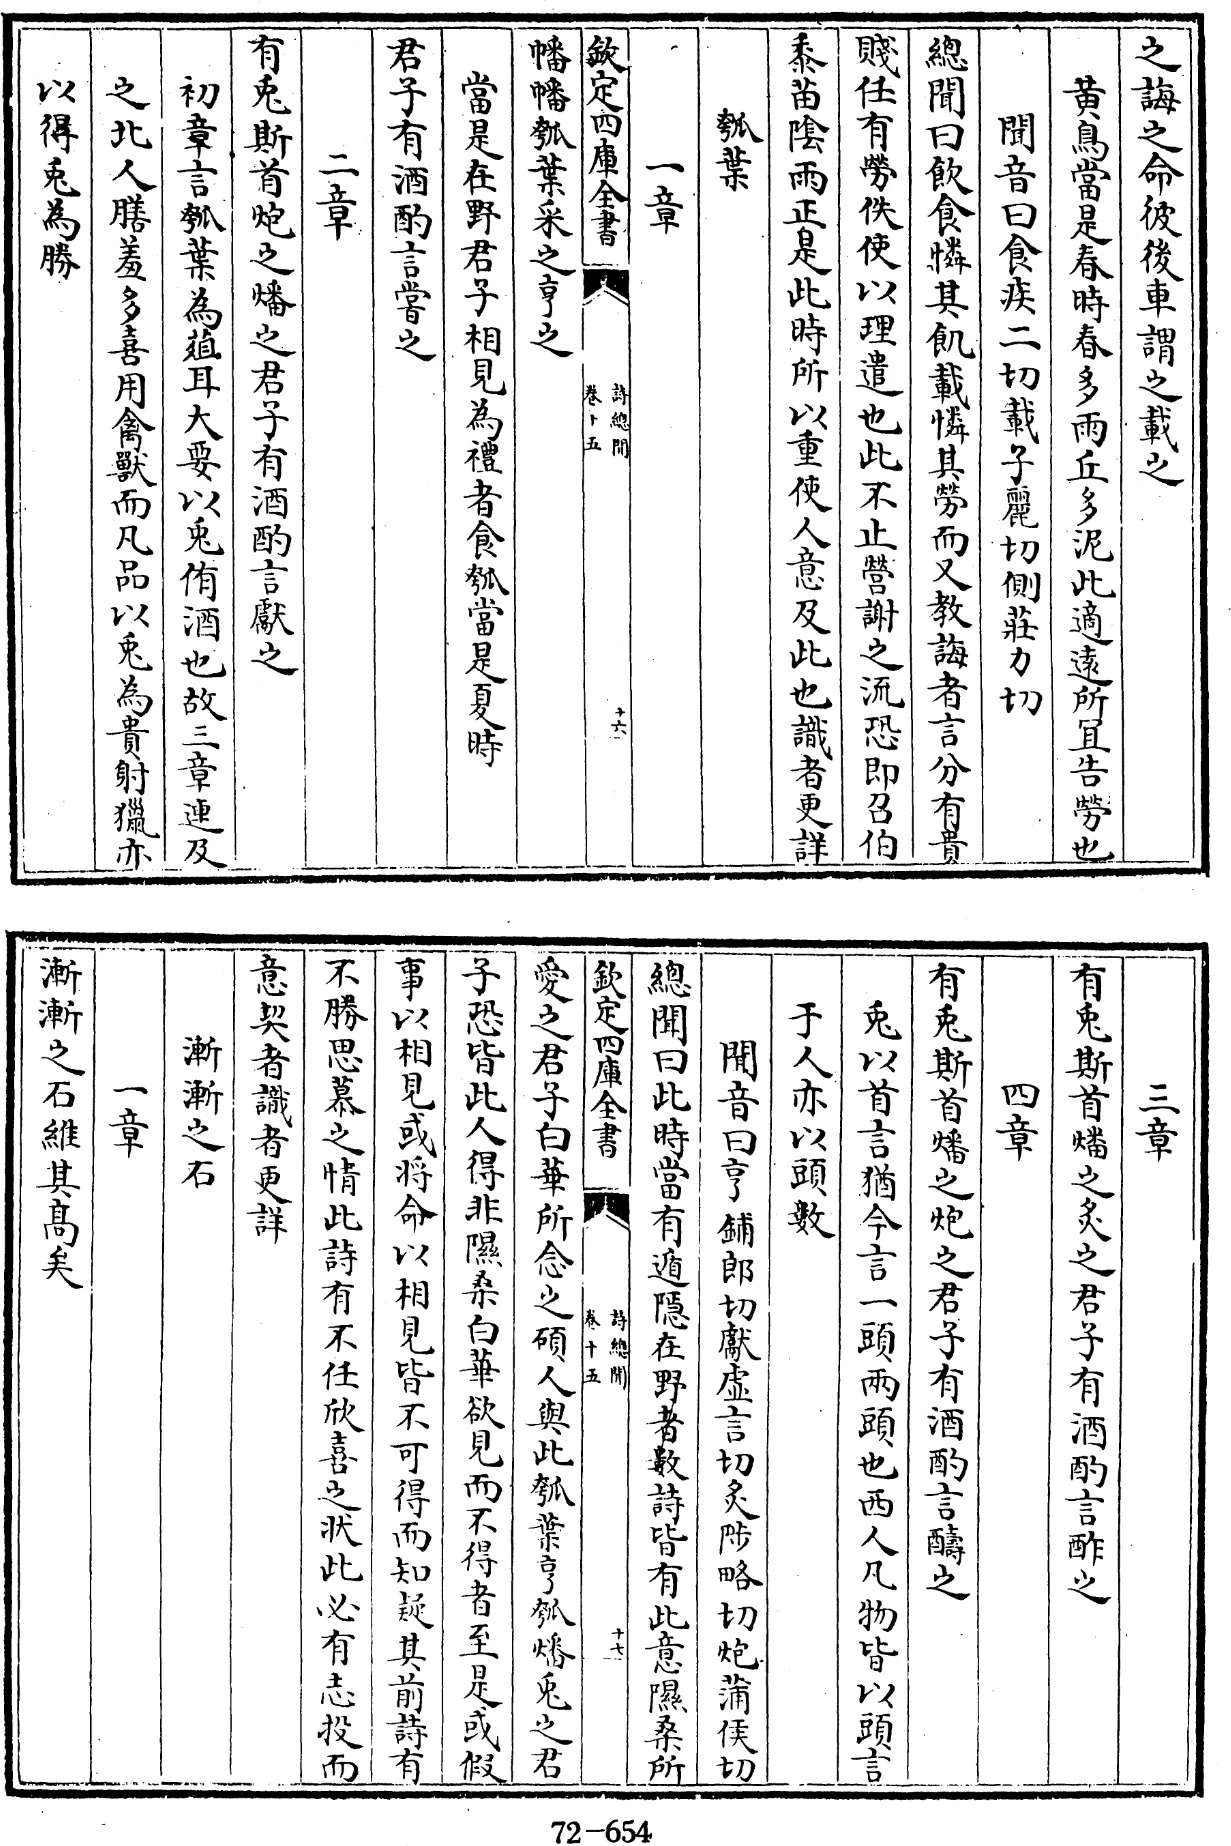 之誨之命彼後車謂之載之
黄鳥當是春時春多雨丘多泥此適逺所冝告勞也
聞音曰食疾二切載子麗切側莊力切
總聞曰飲食憐其飢載憐其勞而又教誨者言分有貴
賤任有勞佚使以理遣也此不止營謝之流恐即召伯
黍苗隂雨正是此時所以重使人意及此也識者更詳
瓠葉
一章
欽定四庫全書
詩總聞
卷十五
十六
幡幡瓠葉采之亨之
當是在野君子相見為禮者食瓠當是夏時
君子有酒酌言嘗之
二章
有兎斯首炮之燔之君子有酒酌言獻之
初章言瓠葉為葅耳大要以兎侑酒也故三章連及
之北人膳羞多喜用禽獸而凡品以兎為貴射獵亦
以得兎為勝
三章
有兎斯首燔之炙之君子有酒酌言酢之
四章
有兎斯首燔之炮之君子有酒酌言醻之
兎以首言猶今言一頭兩頭也西人凡物皆以頭言
于人亦以頭數
聞音曰亨鋪郎切獻虚言切炙陟略切炮蒲侯切
總聞曰此時當有遁隠在野者數詩皆有此意隰桑所
欽定四庫全書
詩總聞
卷十五
十七
愛之君子白華所念之碩人與此瓠葉亨瓠燔兎之君
子恐皆此人得非隰桑白華欲見而不得者至是或假
事以相見或将命以相見皆不可得而知疑其前詩有
不勝思慕之情此詩有不任欣喜之狀此必有志投而
意契者識者更詳
漸漸之石
一章
漸漸之石維其髙矣
72-654